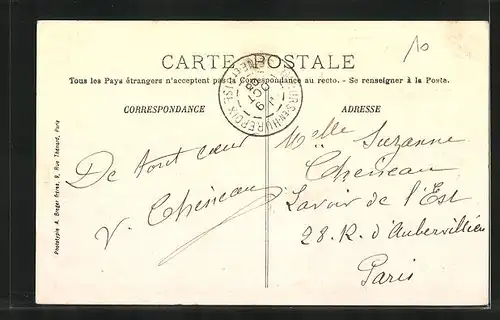 10
CARTE POSTALE
Tous les Pays étrangers n'acceptent pas la Correspondance au recto. - Se renseigner à la Poste.
CORRESPONDANCE
ADRESSE
De tout cœur
V. Chéneau
Melle Suzanne
Chéneau
Lavoir de l'Est
28. R. d'Aubervilliers
Paris
Phototypie A. Breger Frères, 9, Rue Thénard, Paris